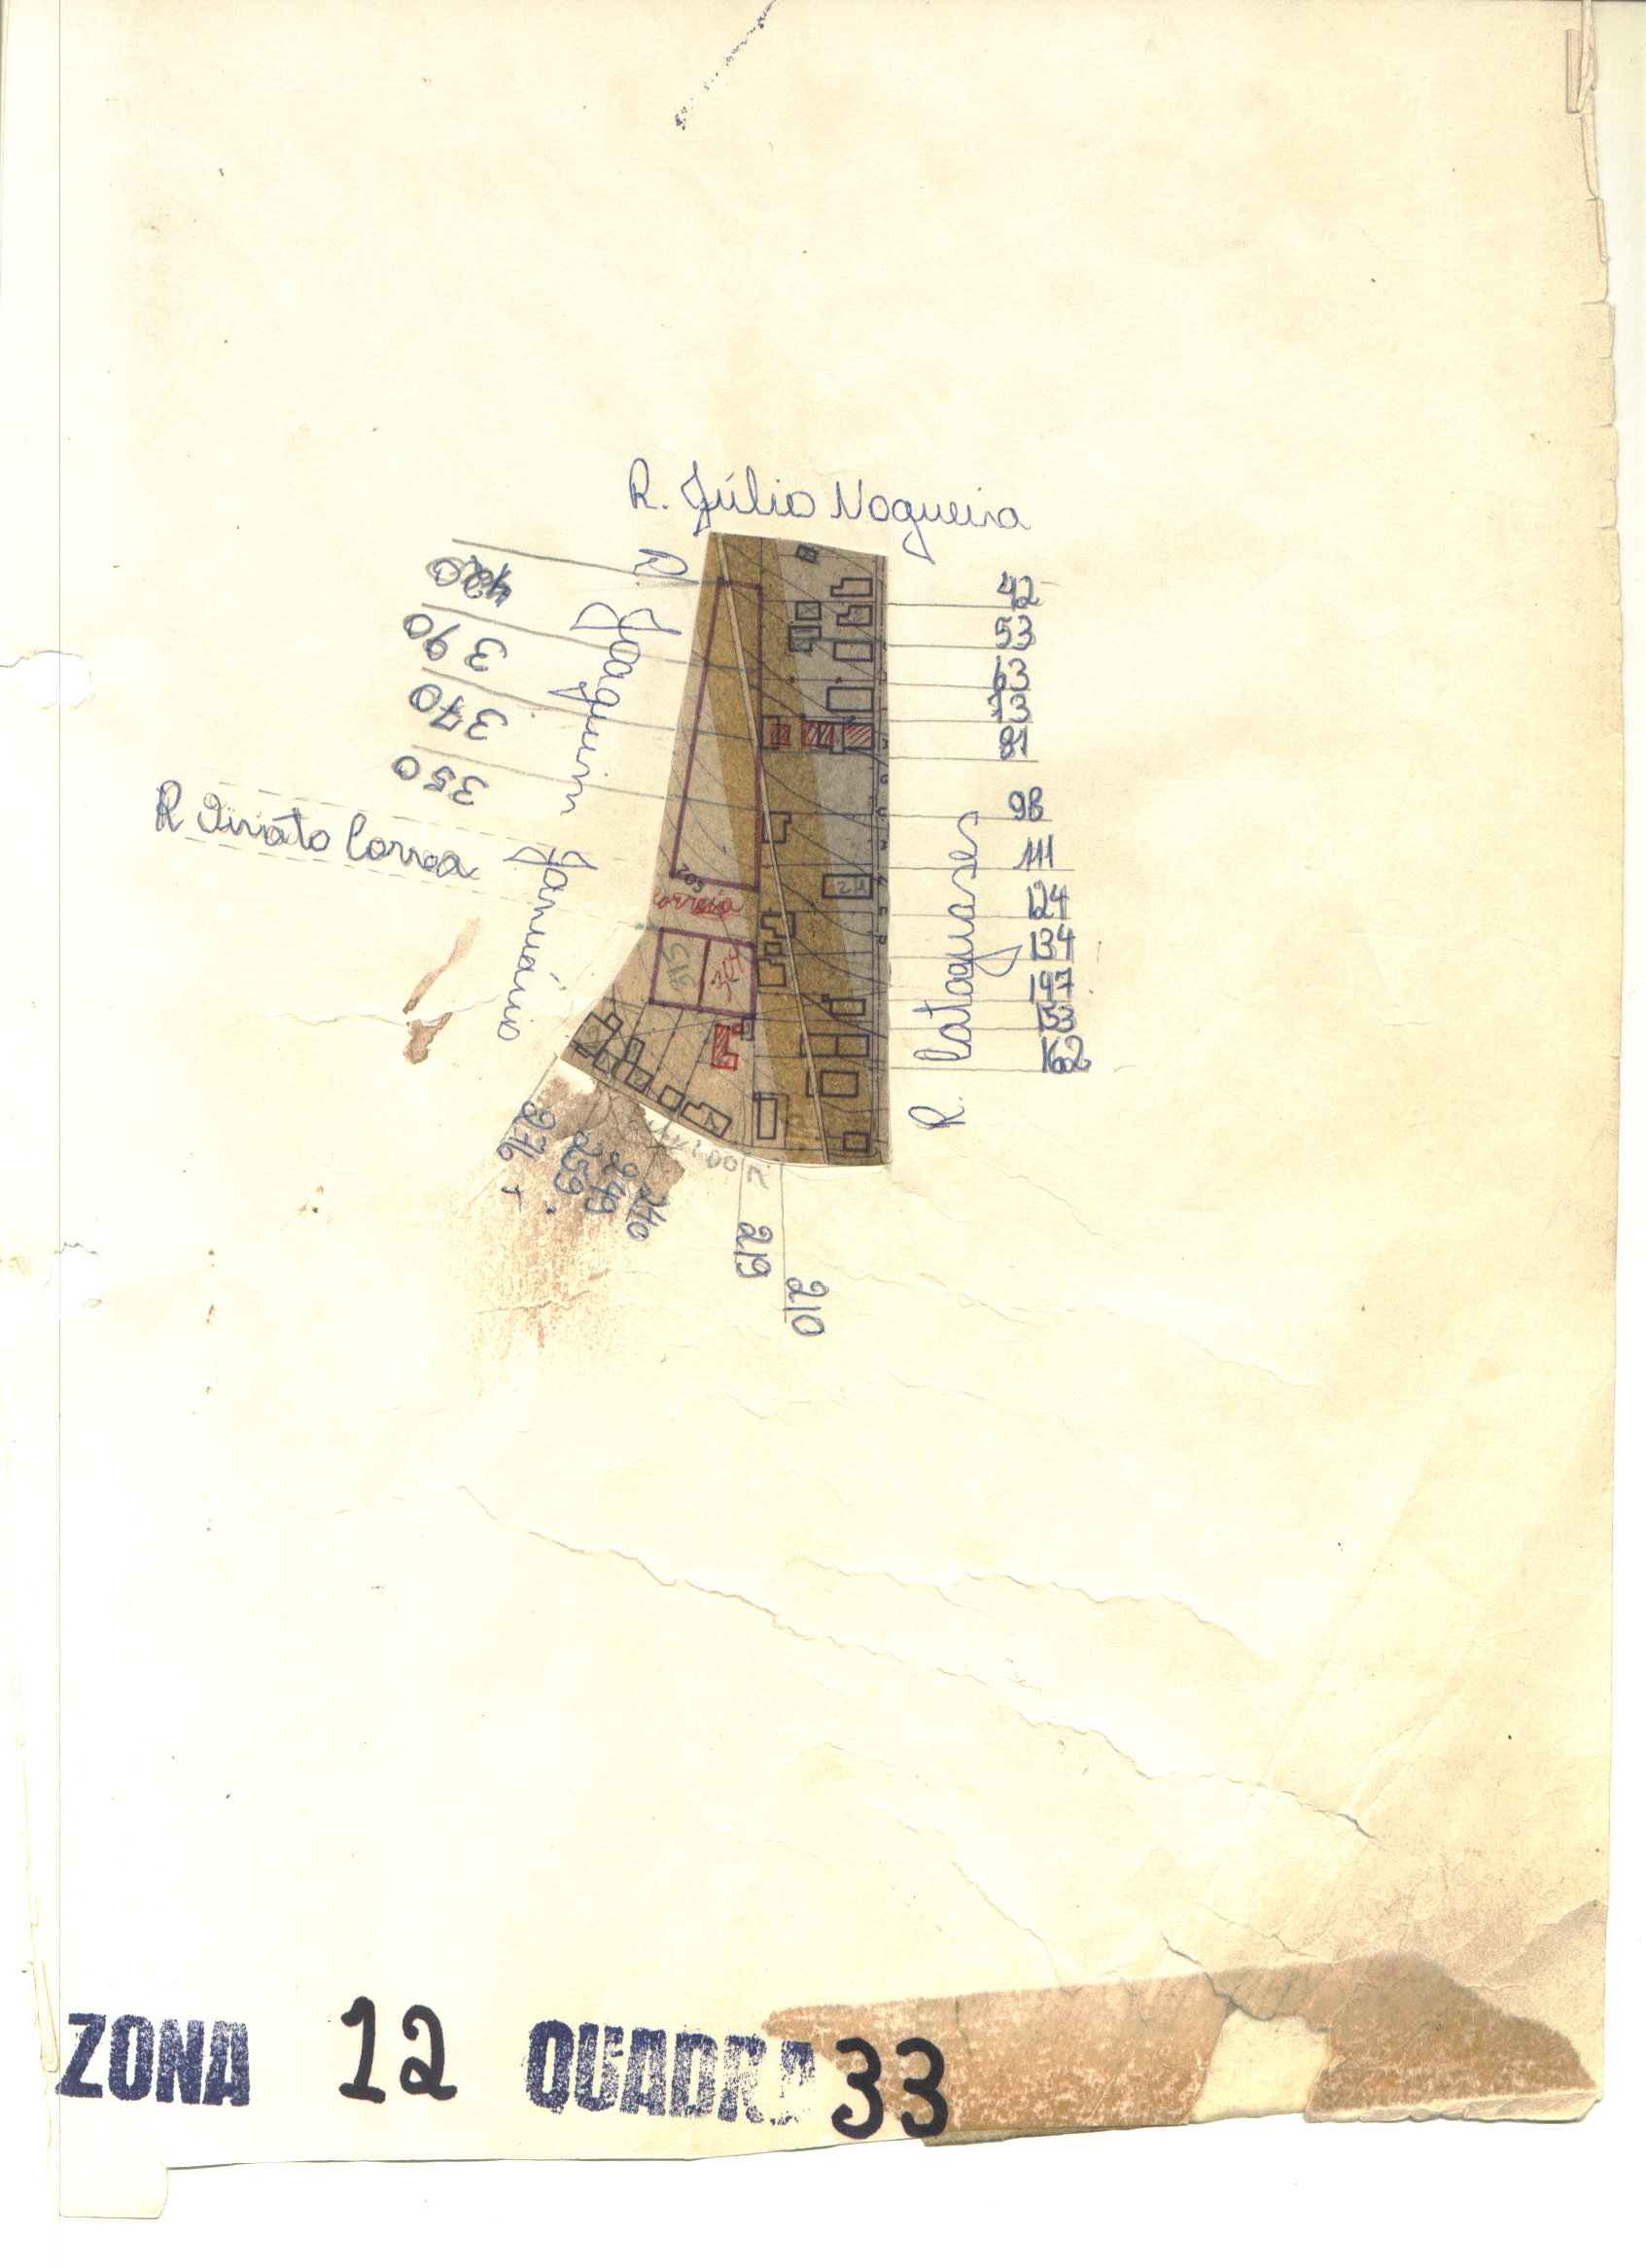 R. Júlio Nogueira
R. Joaquim Januário
420
390
370
350
R Viriato Correa
42
53
63
73
81
98
111
124
134
147
153
162
R. Cataguases
205
Correia
315
304
21
276
259
249
240
219
210
ZONA 12 QUADRA 33